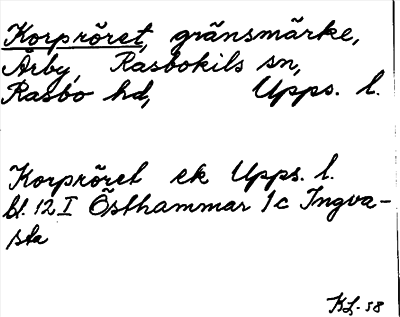 Korpröret, gränsmärke,
Årby, Rasbokils sn,
Rasbo hd, Upps. l.
Korpröret ek Upps. l.
bl. 12 I Östhammar 1c Ingva-
sta
KL-58